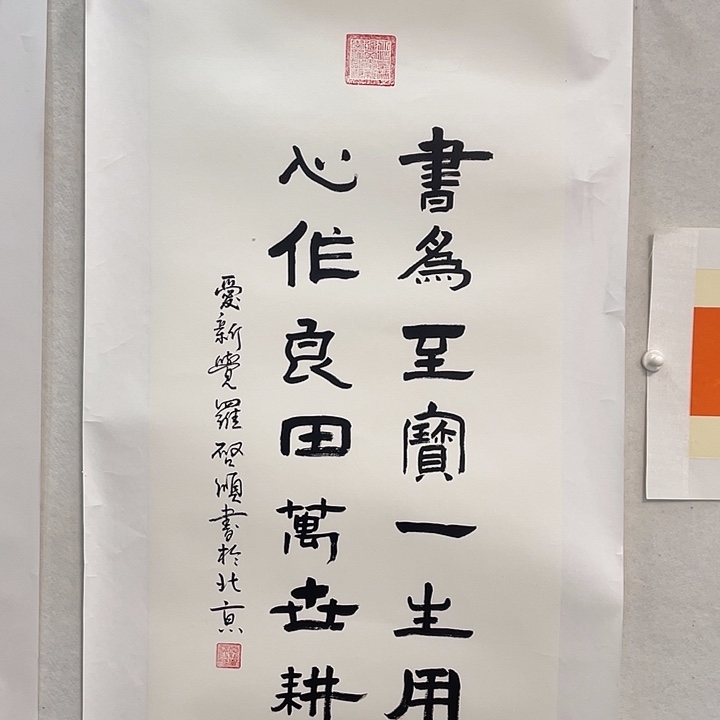 書為至寶一生用
心作良田萬世耕
愛新覺羅啓順書於北京